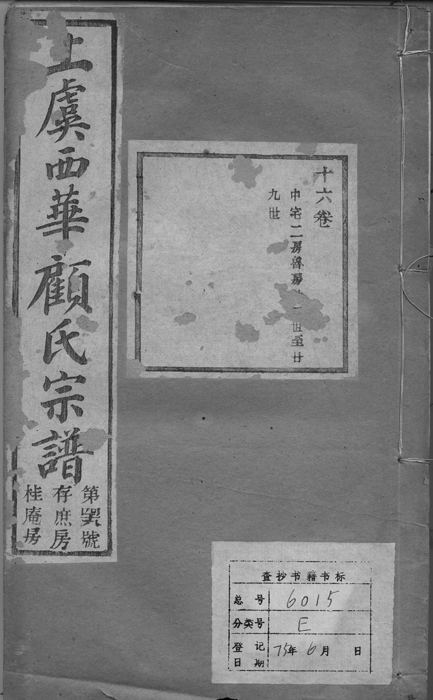 上虞西華顧氏宗譜
第 號
存庶房
桂庵房
十六卷
中宅二房 房 世至廿
九世
查抄书籍书标
总号 6015
分类号 E
登记日期 75年6月 日